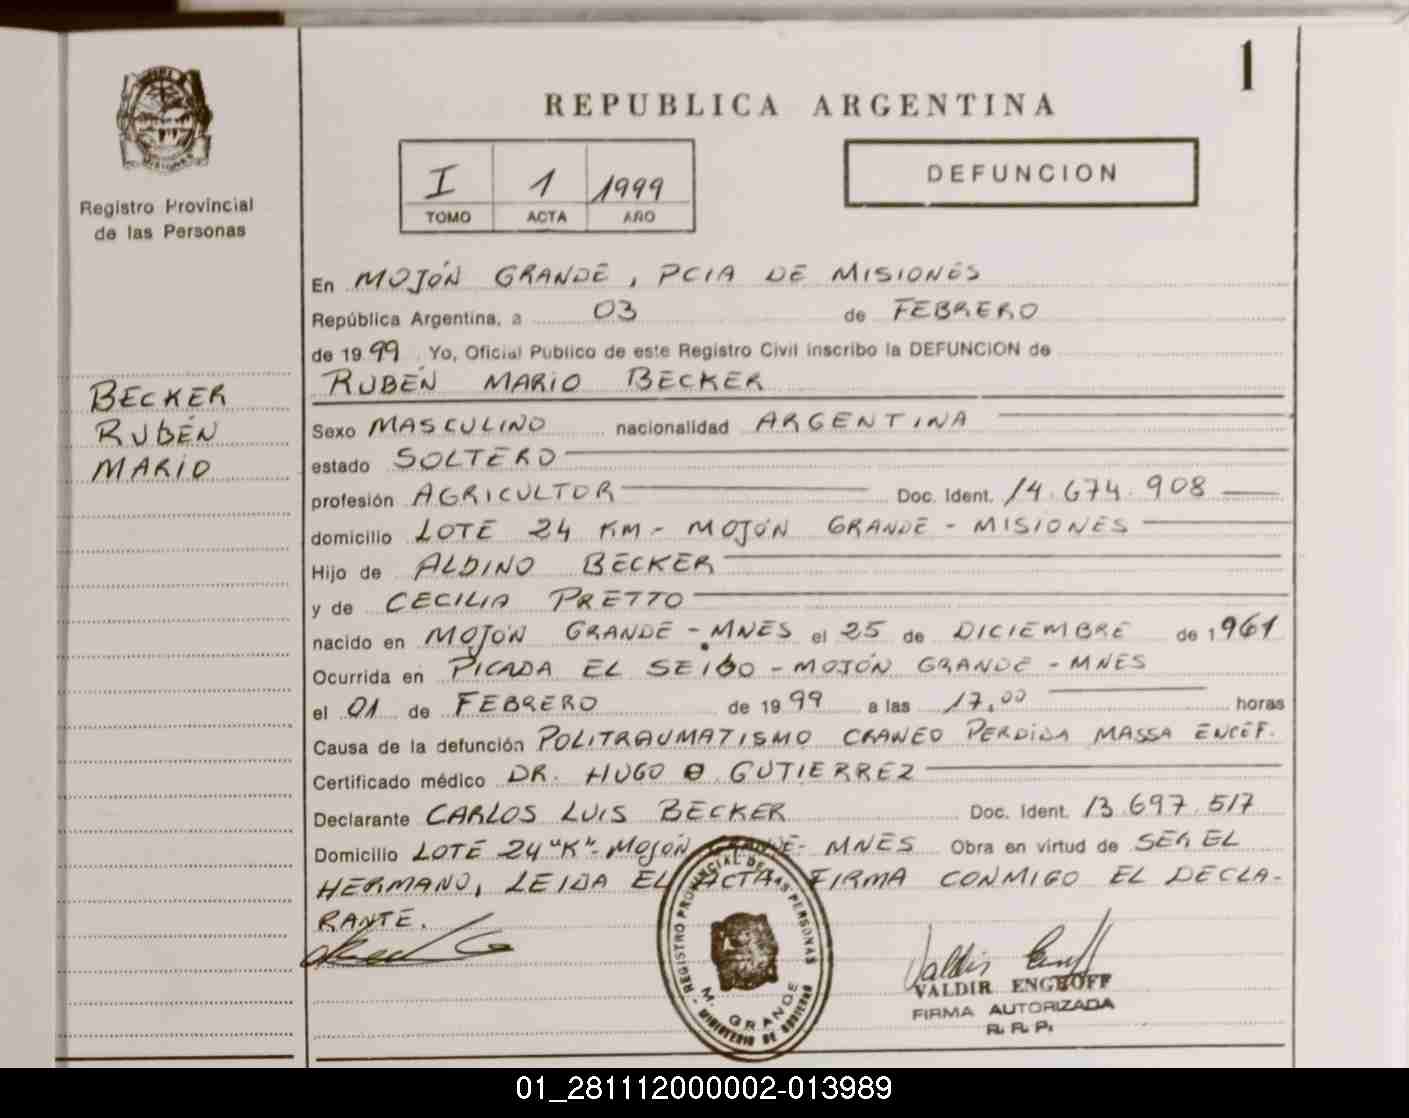 1
REPUBLICA ARGENTINA
I 1 1999
TOMO ACTA AÑO
DEFUNCION
MISIONES
Registro Provincial
de las Personas
BECKER
RUBÉN
MARIO
En MOJÓN GRANDE, PCIA DE MISIONES
República Argentina, a 03 de FEBRERO
de 1999. Yo, Oficial Público de este Registro Civil inscribo la DEFUNCION de
RUBÉN MARIO BECKER
Sexo MASCULINO nacionalidad ARGENTINA
estado SOLTERO
profesión AGRICULTOR Doc. Ident. 14.674.908
domicilio LOTE 24 KM - MOJÓN GRANDE - MISIONES
Hijo de ALDINO BECKER
y de CECILIA PRETTO
nacido en MOJÓN GRANDE - MNES el 25 de DICIEMBRE de 1961
Ocurrida en PICADA EL SEIBO - MOJÓN GRANDE - MNES
el 01 de FEBRERO de 1999 a las 17,00 horas
Causa de la defunción POLITRAUMATISMO CRANEO PERDIDA MASSA ENCEF.
Certificado médico DR. HUGO O GUTIERREZ
Declarante CARLOS LUIS BECKER Doc. Ident. 13.697.517
Domicilio LOTE 24 "K" - MOJÓN GRANDE - MNES Obra en virtud de SER EL
HERMANO, LEIDA EL ACTA FIRMA CONMIGO EL DECLA-
RANTE.
REGISTRO PROVINCIAL DE LAS PERSONAS
M. GRANDE
MINISTERIO DE GOBIERNO
Valdir Enghoff
VALDIR ENGHOFF
FIRMA AUTORIZADA
R. R. P.
01_281112000002-013989